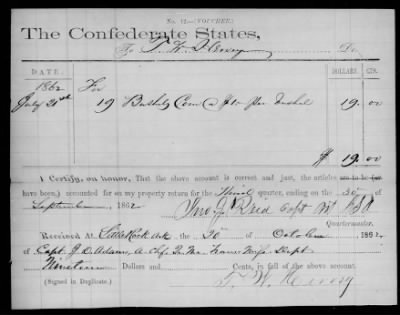 No. 12.—(VOUCHER.)
The Confederate States,
To T. W. Dr.
DATE. DOLLARS. CTS.
1862 For
July 21st 19 Bushels Corn @ $1.00 per bushel 19. 00
$ 19. 00
I Certify, on honor, That the above account is correct and just, the articles are to be (or
have been,) accounted for on my property return for the Third quarter, ending on the 30th of
September, 1862 Jno. J. Reid Capt
Quartermaster.
Received At Little Rock Ark the 20 of October 1862
of Capt. J. D. Adams, A. Chf. Q. M. Trans Miss. Dept
Nineteen Dollars and Cents, in full of the above account.
(Signed in Duplicate.) T. W.